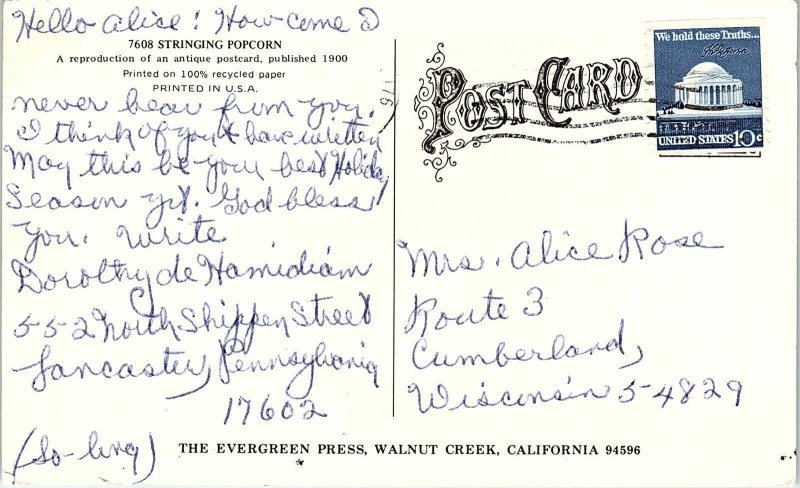 Hello Alice! How come I
7608 STRINGING POPCORN
A reproduction of an antique postcard, published 1900
Printed on 100% recycled paper
PRINTED IN U.S.A.
never hear from you.
I think of you & have written
May this be your best Holiday
Season yet. God bless
you. Write
Dorothy de Hamidiám
552 North Shippen Street
Lancaster, Pennsylvania
17602
(So-long)
POST CARD
We hold these Truths...
UNITED STATES 10c
Mrs. Alice Rose
Route 3
Cumberland,
Wisconsin 54829
THE EVERGREEN PRESS, WALNUT CREEK, CALIFORNIA 94596